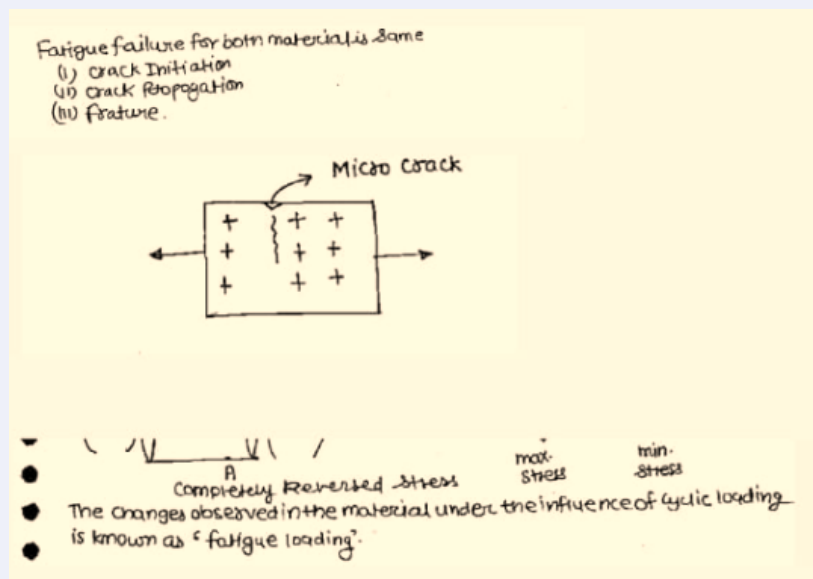 Fatigue failure for both material is same
(i) crack Initiation
(ii) crack Propogation
(iii) frature.
Micro Crack
+ + +
+ + +
+ + +
A
max. min.
Completely Reversed stress stress stress
The changes observed in the material under the influence of cyclic loading
is known as ‘fatigue loading’.